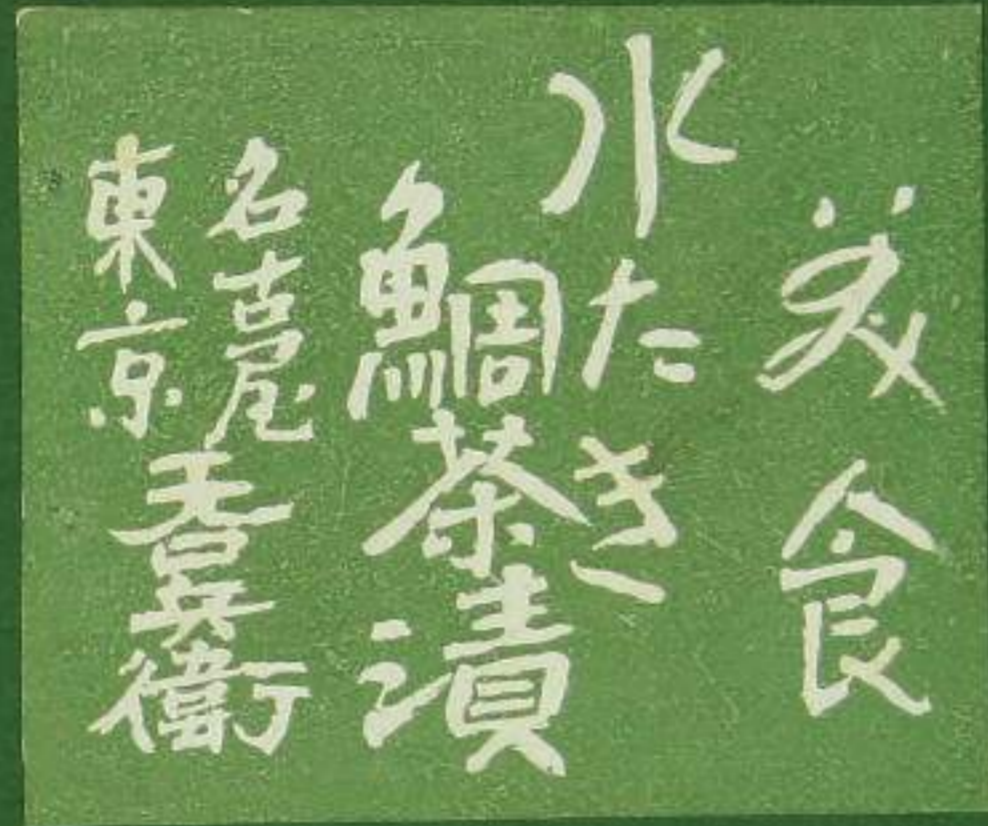 美食
水たき
鯛茶漬
名古屋
東京
呑兵衛